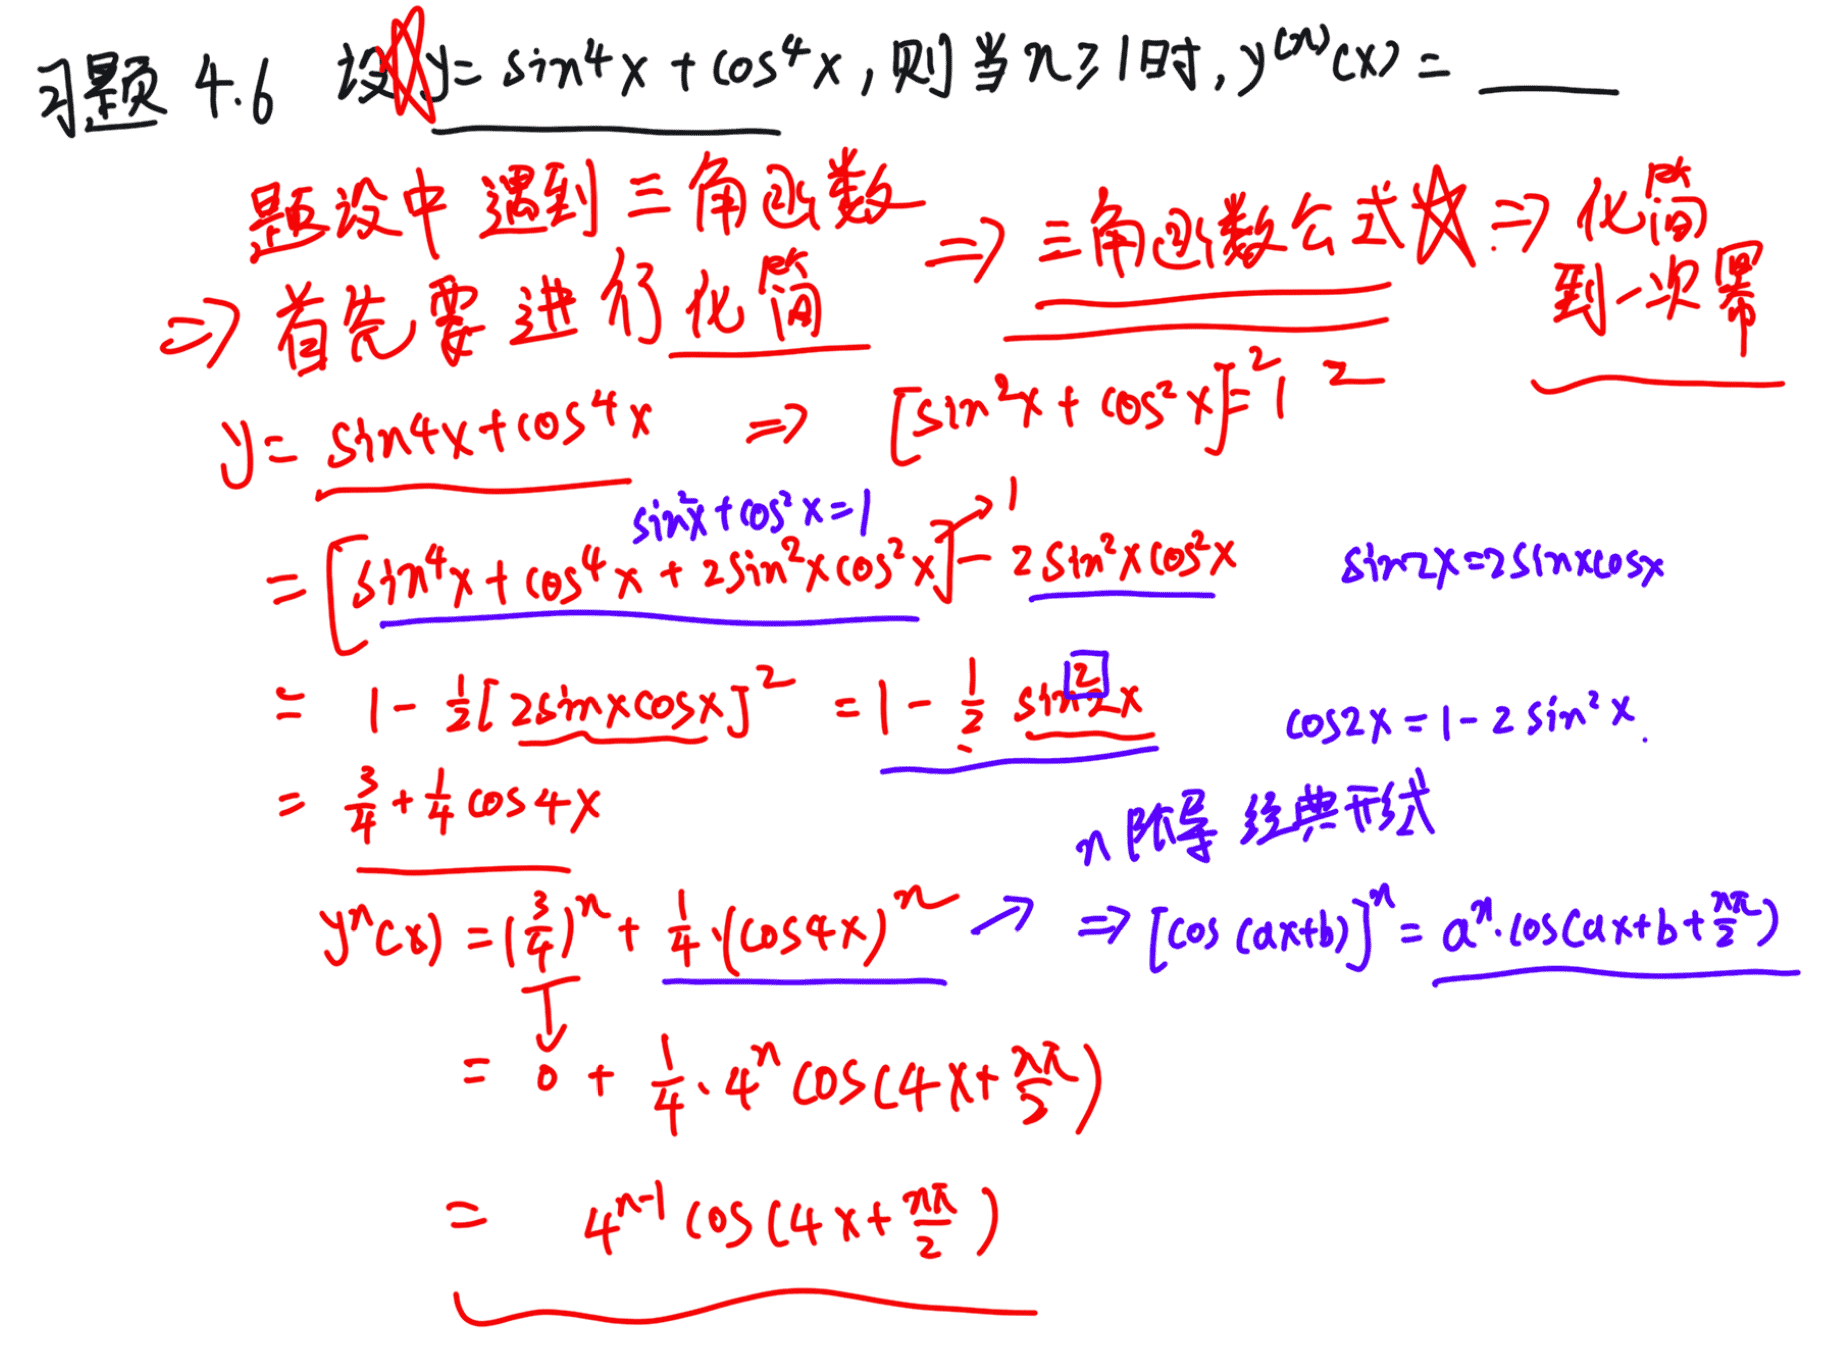 习题 4.6 设 y = sin⁴x + cos⁴x , 则当 n ≥ 1时, y⁽ⁿ⁾(x) = ____
题设中遇到三角函数 ⇒ 三角函数公式☆ ⇒ 化简
到一次幂
⇒ 首先要进行化简
y = sin4x + cos⁴x ⇒ [sin²x + cos²x]² = 1²
sin²x + cos²x = 1
= [sin⁴x + cos⁴x + 2sin²xcos²x]→1 - 2sin²xcos²x sin2x = 2sinxcosx
= 1 - 1/2[2sinxcosx]² = 1 - 1/2 sin²2x cos2x = 1 - 2sin²x.
= 3/4 + 1/4 cos4x n阶导 经典形式
yⁿ(x) = (3/4)ⁿ + 1/4·(cos4x)ⁿ → ⇒ [cos(ax+b)]ⁿ = aⁿ·cos(ax+b+nπ/2)
↓
= 0 + 1/4·4ⁿcos(4x + nπ/2)
= 4ⁿ⁻¹cos(4x + nπ/2)